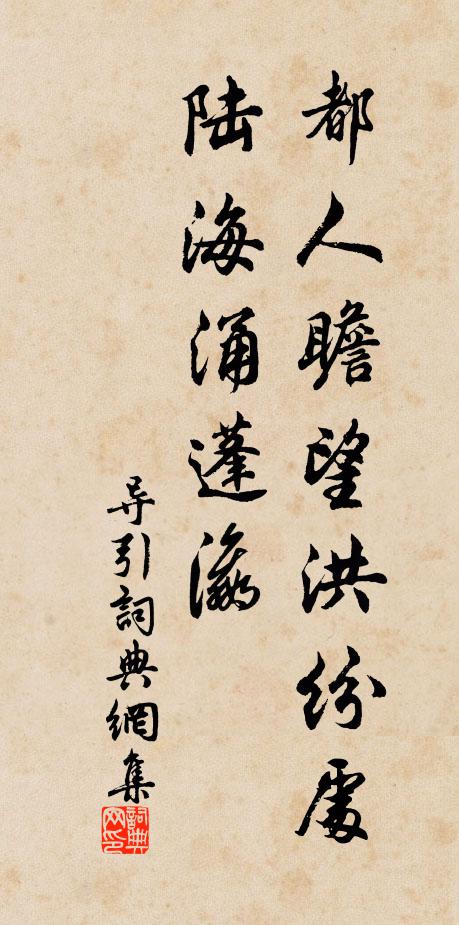 都人瞻望洪纷處
陆海涌蓬瀛
导引詞典網集
詞典网印